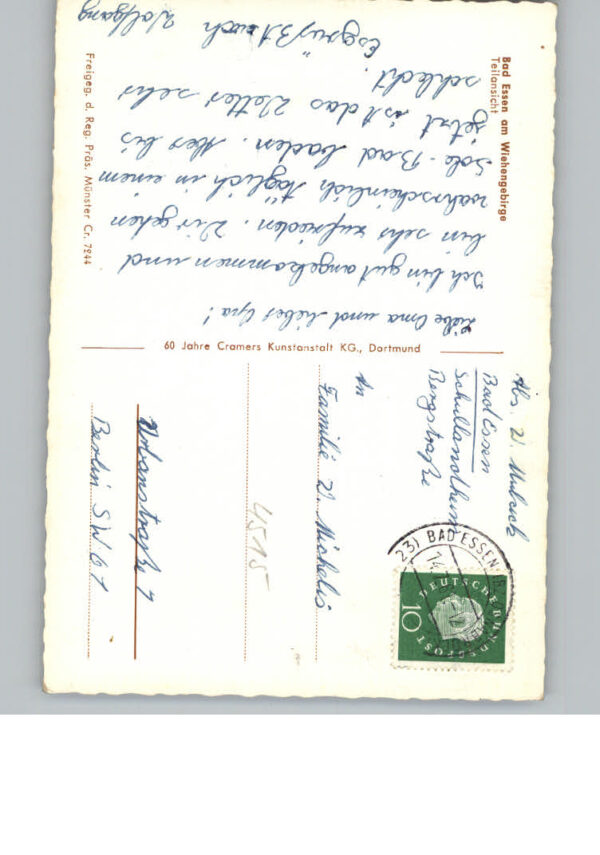 Bad Essen am Wiehengebirge
Teilansicht
Liebe Oma und liebes Opa!
Ich bin gut angekommen und
bin sehr zufrieden. Wir gehen
wahrscheinlich täglich in einem
Sole-Bad baden. Aber bis
jetzt ist das Wetter sehr
schlecht.
Es grüßt euch
Wolfgang
Freigeg. d. Reg. Präs. Münster Cr. 7244
60 Jahre Cramers Kunstanstalt KG., Dortmund
Abs. W.
Bad Essen
Schullandheim
Bergstraße
An
Familie W. Michelis
4515
Urbanstraße 7
Berlin SW 61
23) BAD ESSEN
DEUTSCHE BUNDESPOST
10